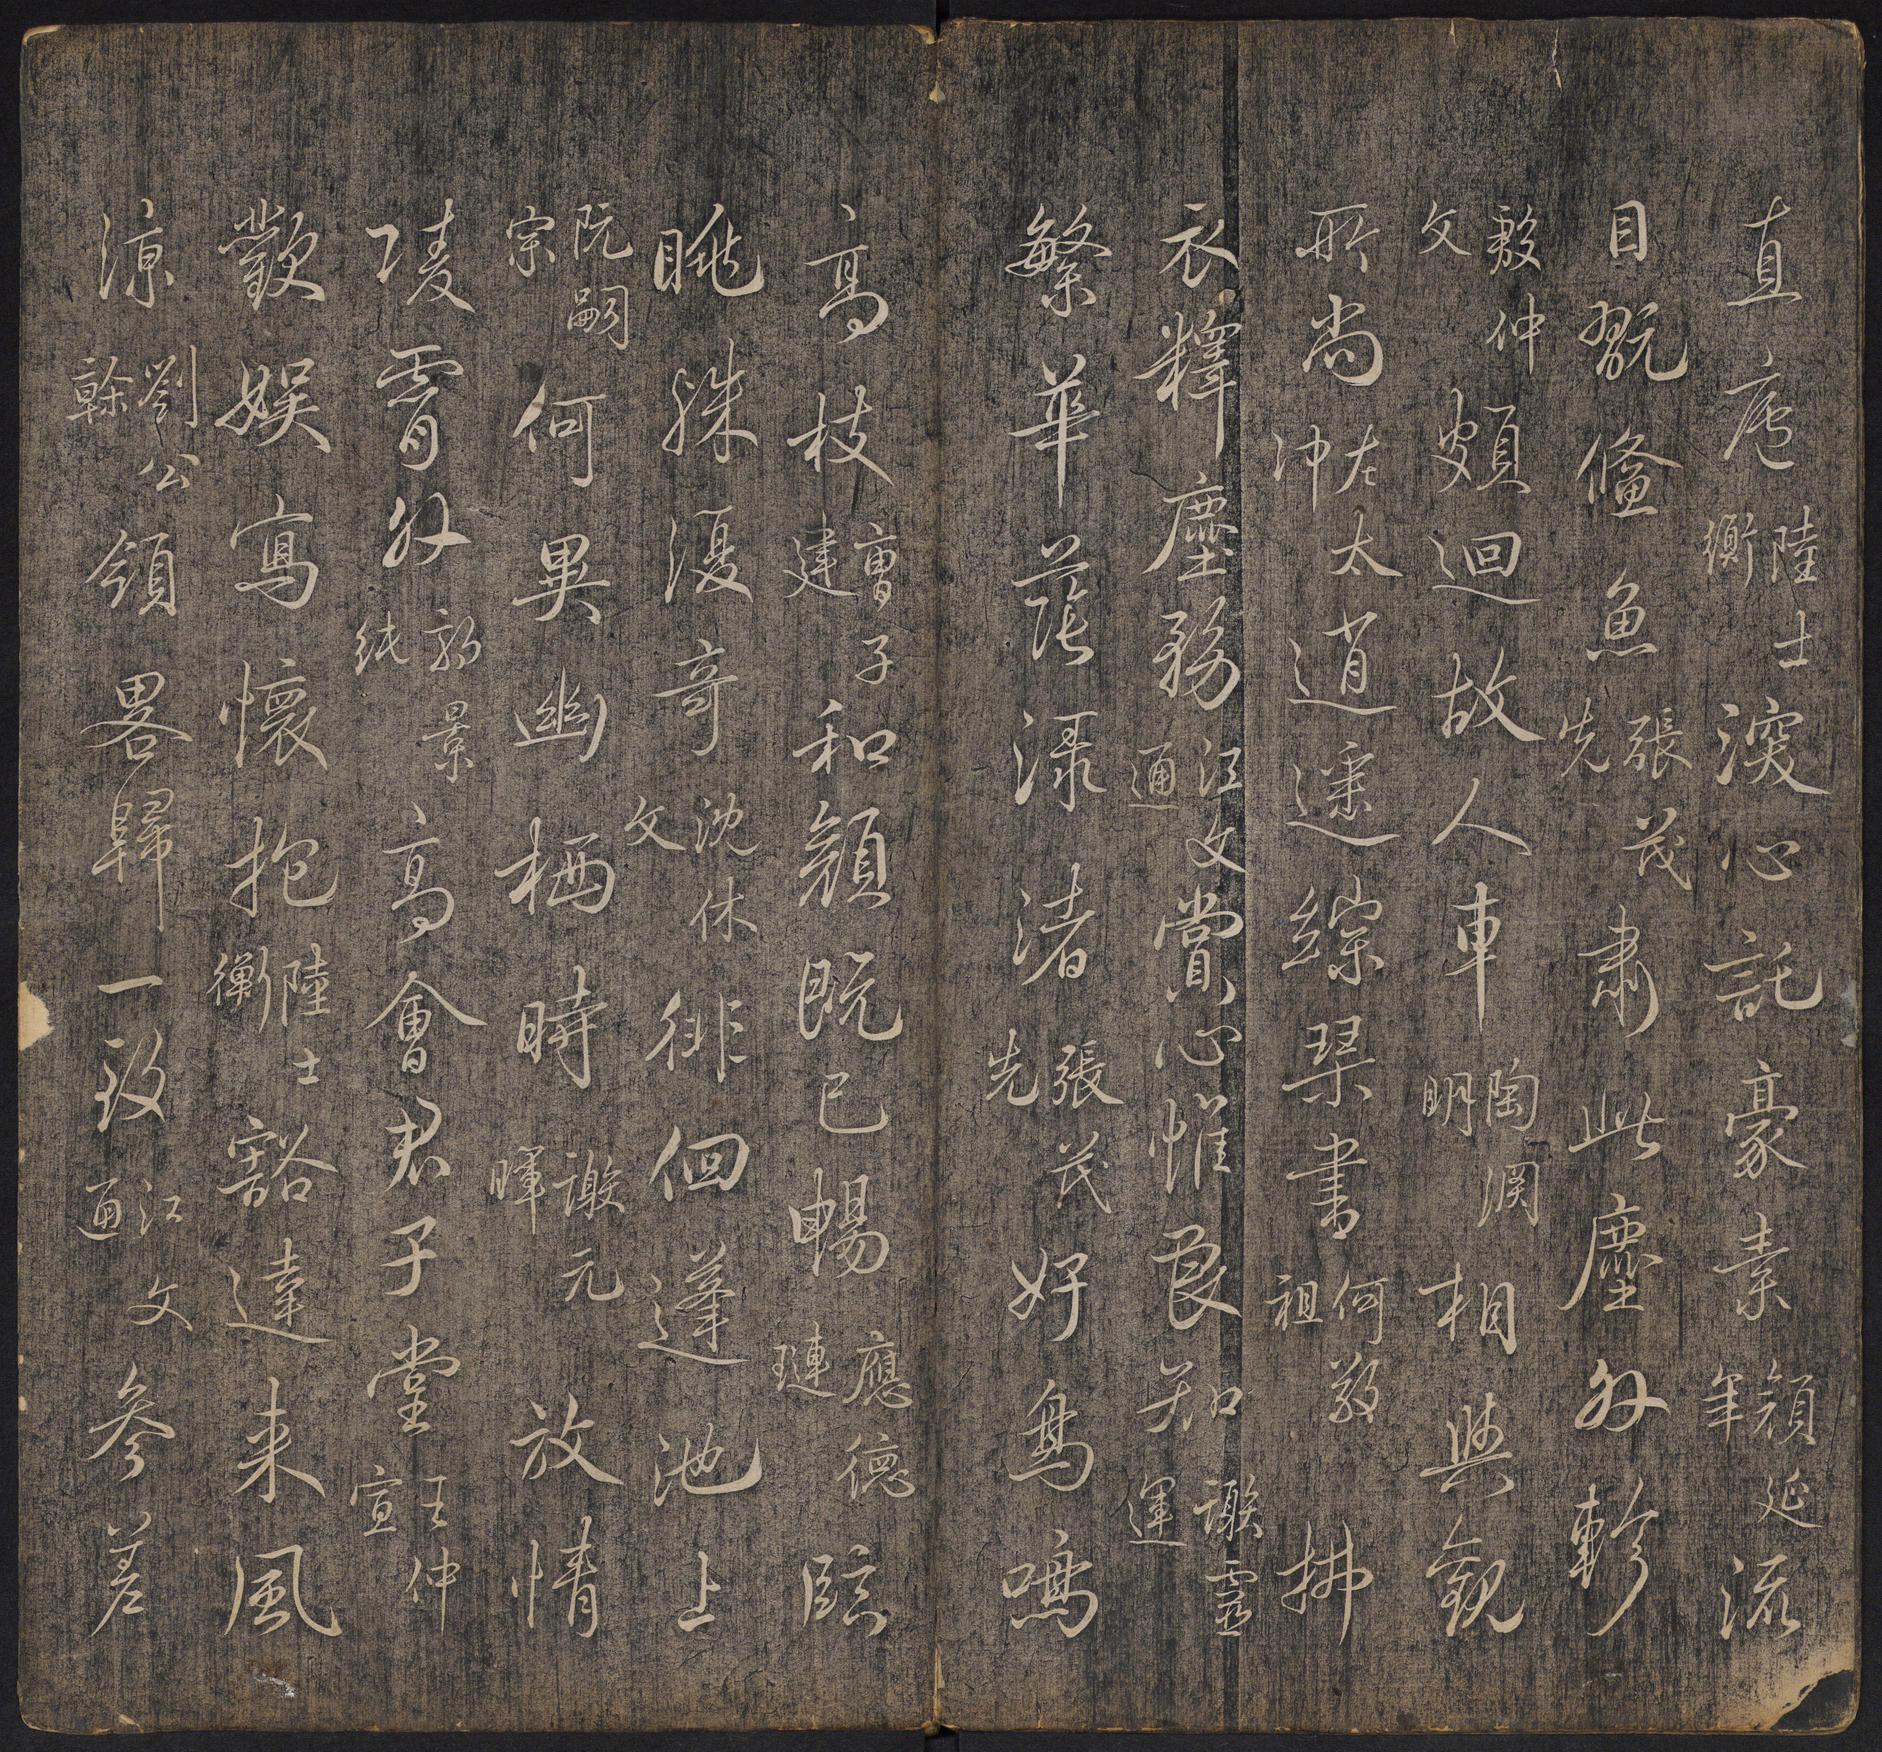 直廬陸士衡深心託豪素顏延年流
目翫儵魚張茂先肅此塵外軫
殷仲文頗迴故人車陶淵明相與觀
所尚左太沖逍遙綜琴書何敬祖拂
衣釋塵務江文通賞心惟良知謝靈運
繁華蔭淥渚張茂先好鳥鳴
高枝曹子建和顏既已暢應德璉臨
眺殊復奇沈休文徘佪蓬池上
阮嗣宗何異幽栖時謝元暉放情
凌霄外郭景純高會君子堂王仲宣
歡娛寫懷抱陸士衡豁達来風
涼劉公幹領畧歸一致江文通參差